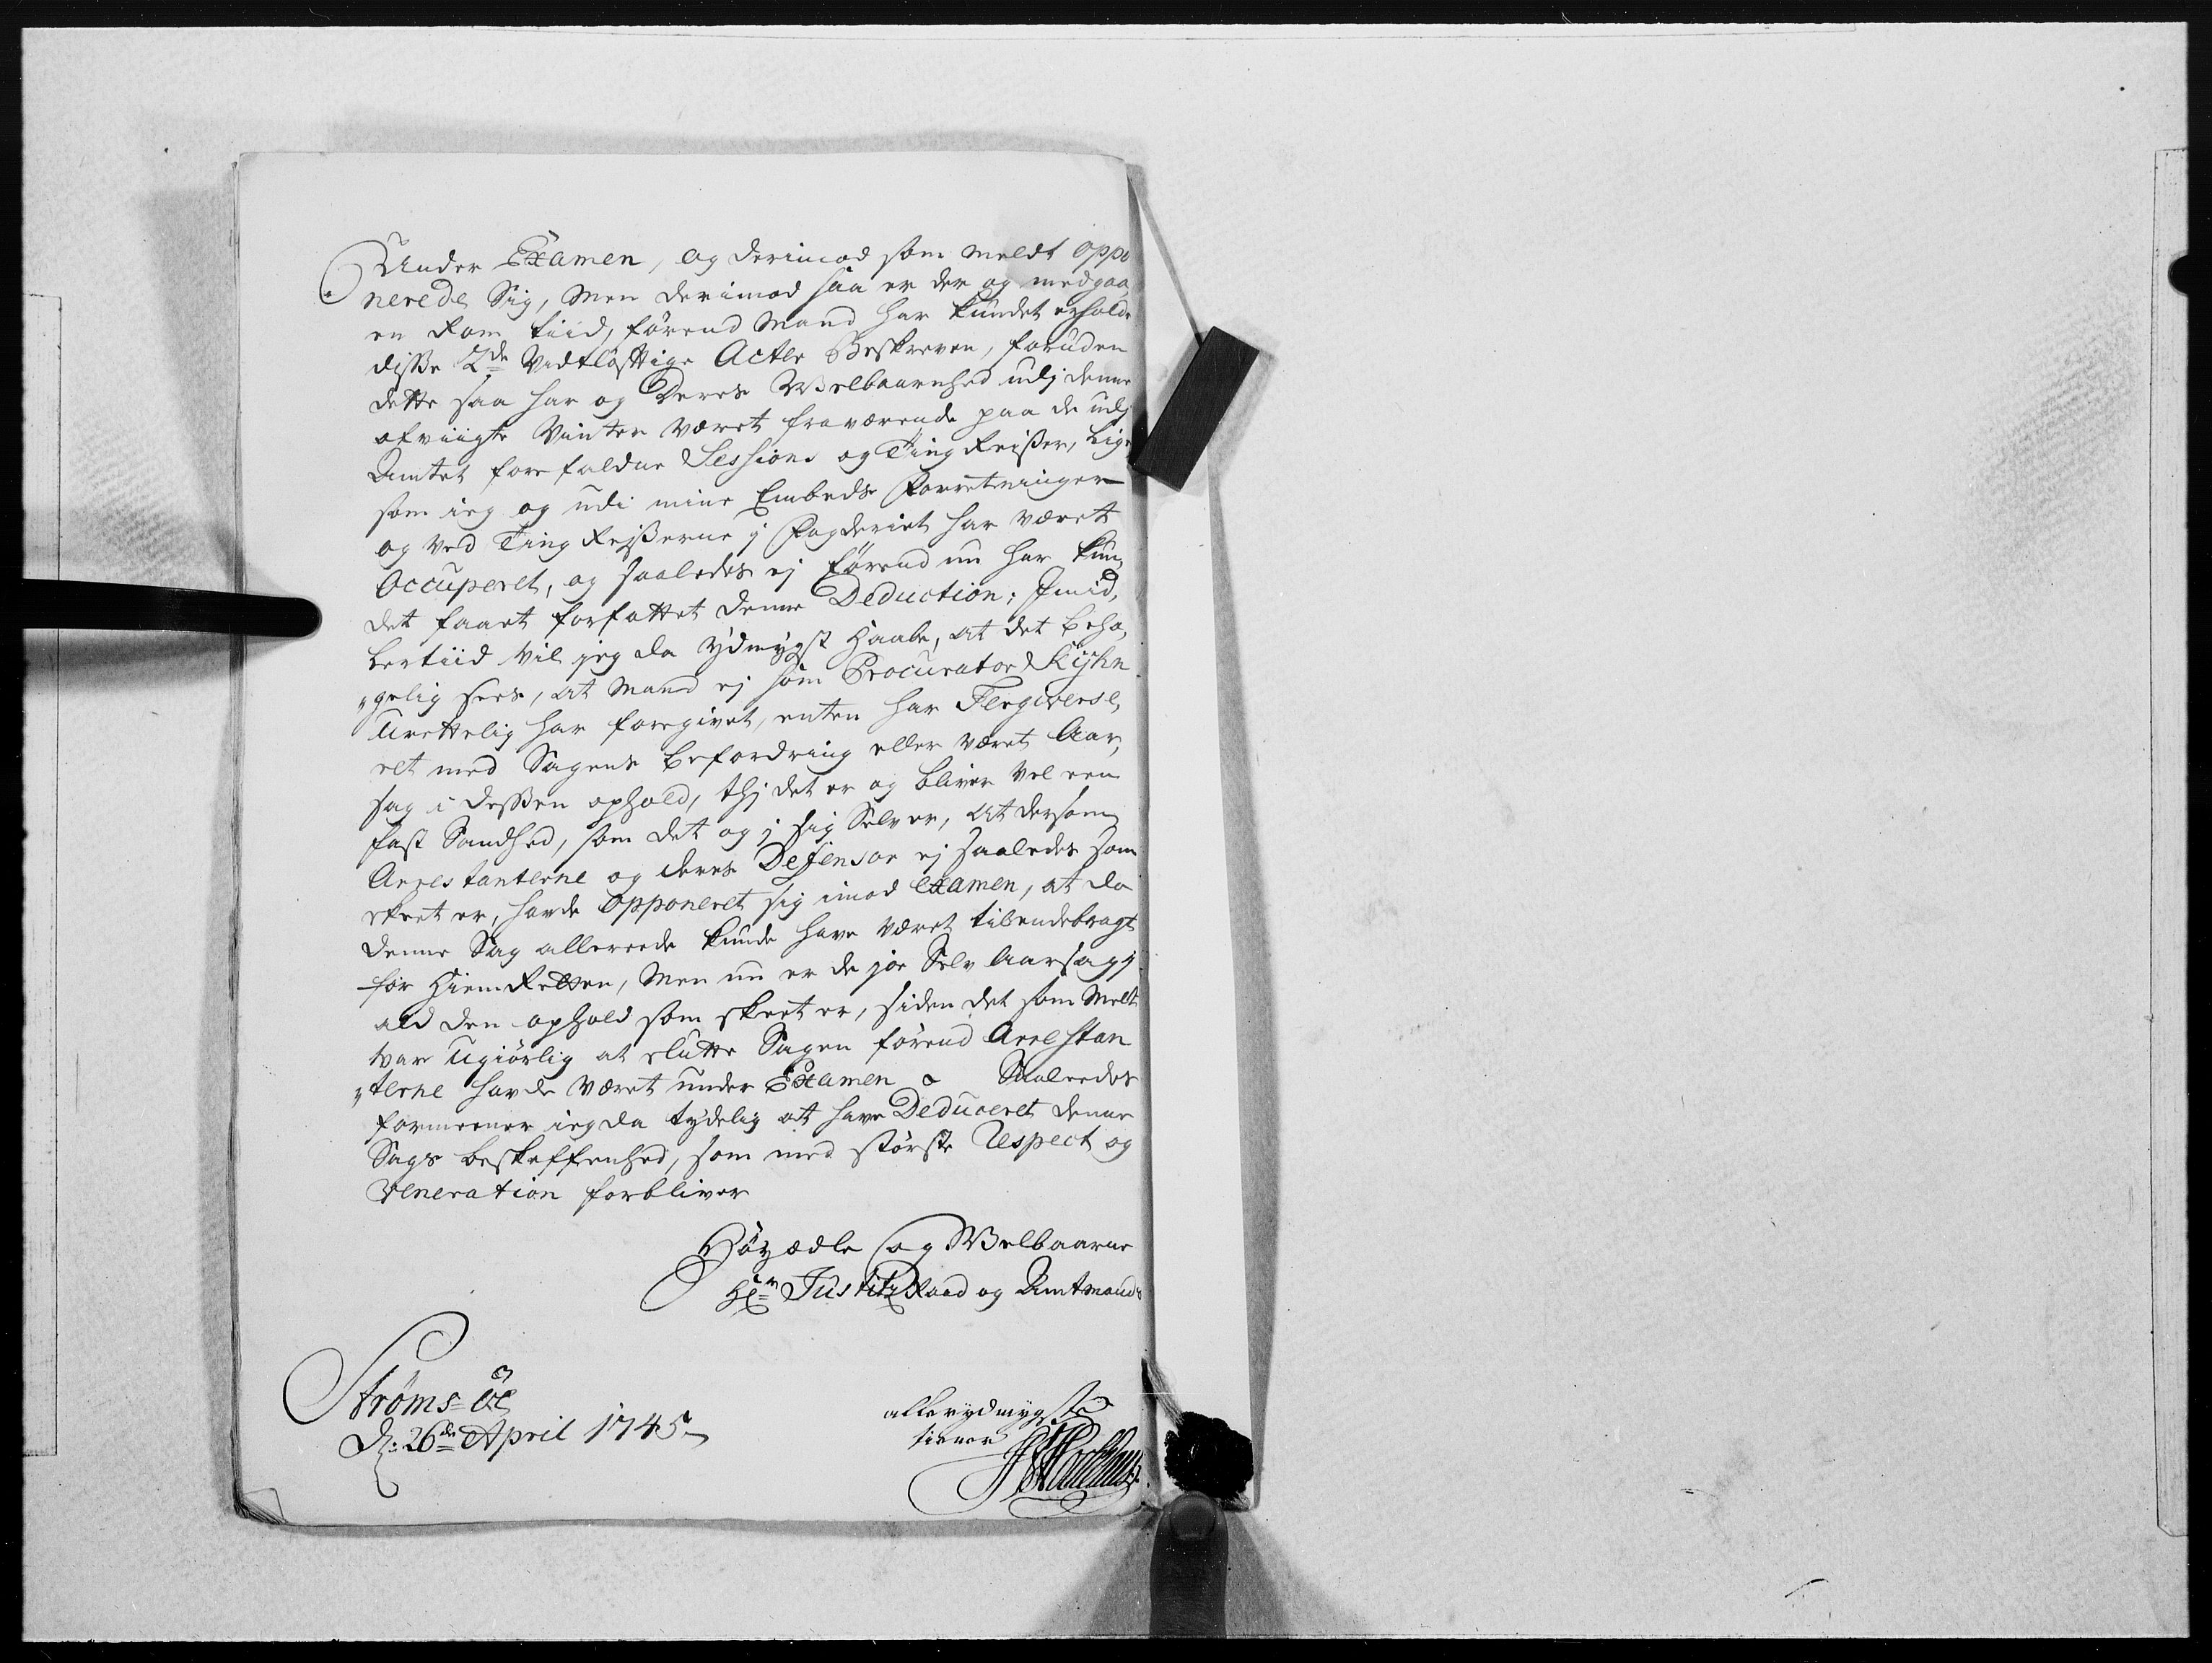 Under Examen, og derimod som meldt oppo
nerede Sig, Men derimod saa er der og medgaa,
en Rom tiid, førend Mand har kundet erholde
disse 2de vidtløfftige Acter Beskreven, foruden
dette saa har og Deres Welbaarnhed udj denne
afviigte Vinter været fraværende paa de udj
Amtet forefaldne Sessions og Ting Reisser, Lige
som ieg og udi mine Embeds Forretninger
og ved Ting Reisserne j Fogderiet har været
Occuperet, og saaledes ej førend nu har kun,
det faaet forfattet denne Deduction; Imid,
lertiid vil jeg da ydmygst Haabe, at det beha,
„gelig sees, at Mand ej som Procurator Kyhn
Urettelig har foregivet, enten har Tergiverse,
ret med Sagens befordring eller været Aar,
sag i dessen ophold, thj det er og bliver vel een
fast Sandhed, som det og j sig Selv er, at dersom
Arrestanterne og deres Defensor ej saaledes som
skeet er, hafde opponeret sig imod examen, at da
denne Sag allereede kunde have været tilendebragt
for HiemRetten, Men nu er de jo Selv Aarsag j
ald den ophold som skeet er, siden det som Melt
var Ugiørlig at slutte Sagen førend Arrestan
„terne hafde været under Examen Saaleedes
formeener ieg da tydelig at have Deduceret denne
Sags beskaffenhed, som med største Respect og
Veneration forbliver
Høyædle og Welbaarne
Hr Justitz Raad og Amtmands
Strøms=Øe
D: 26de April 1745
allerydmygste
tiener